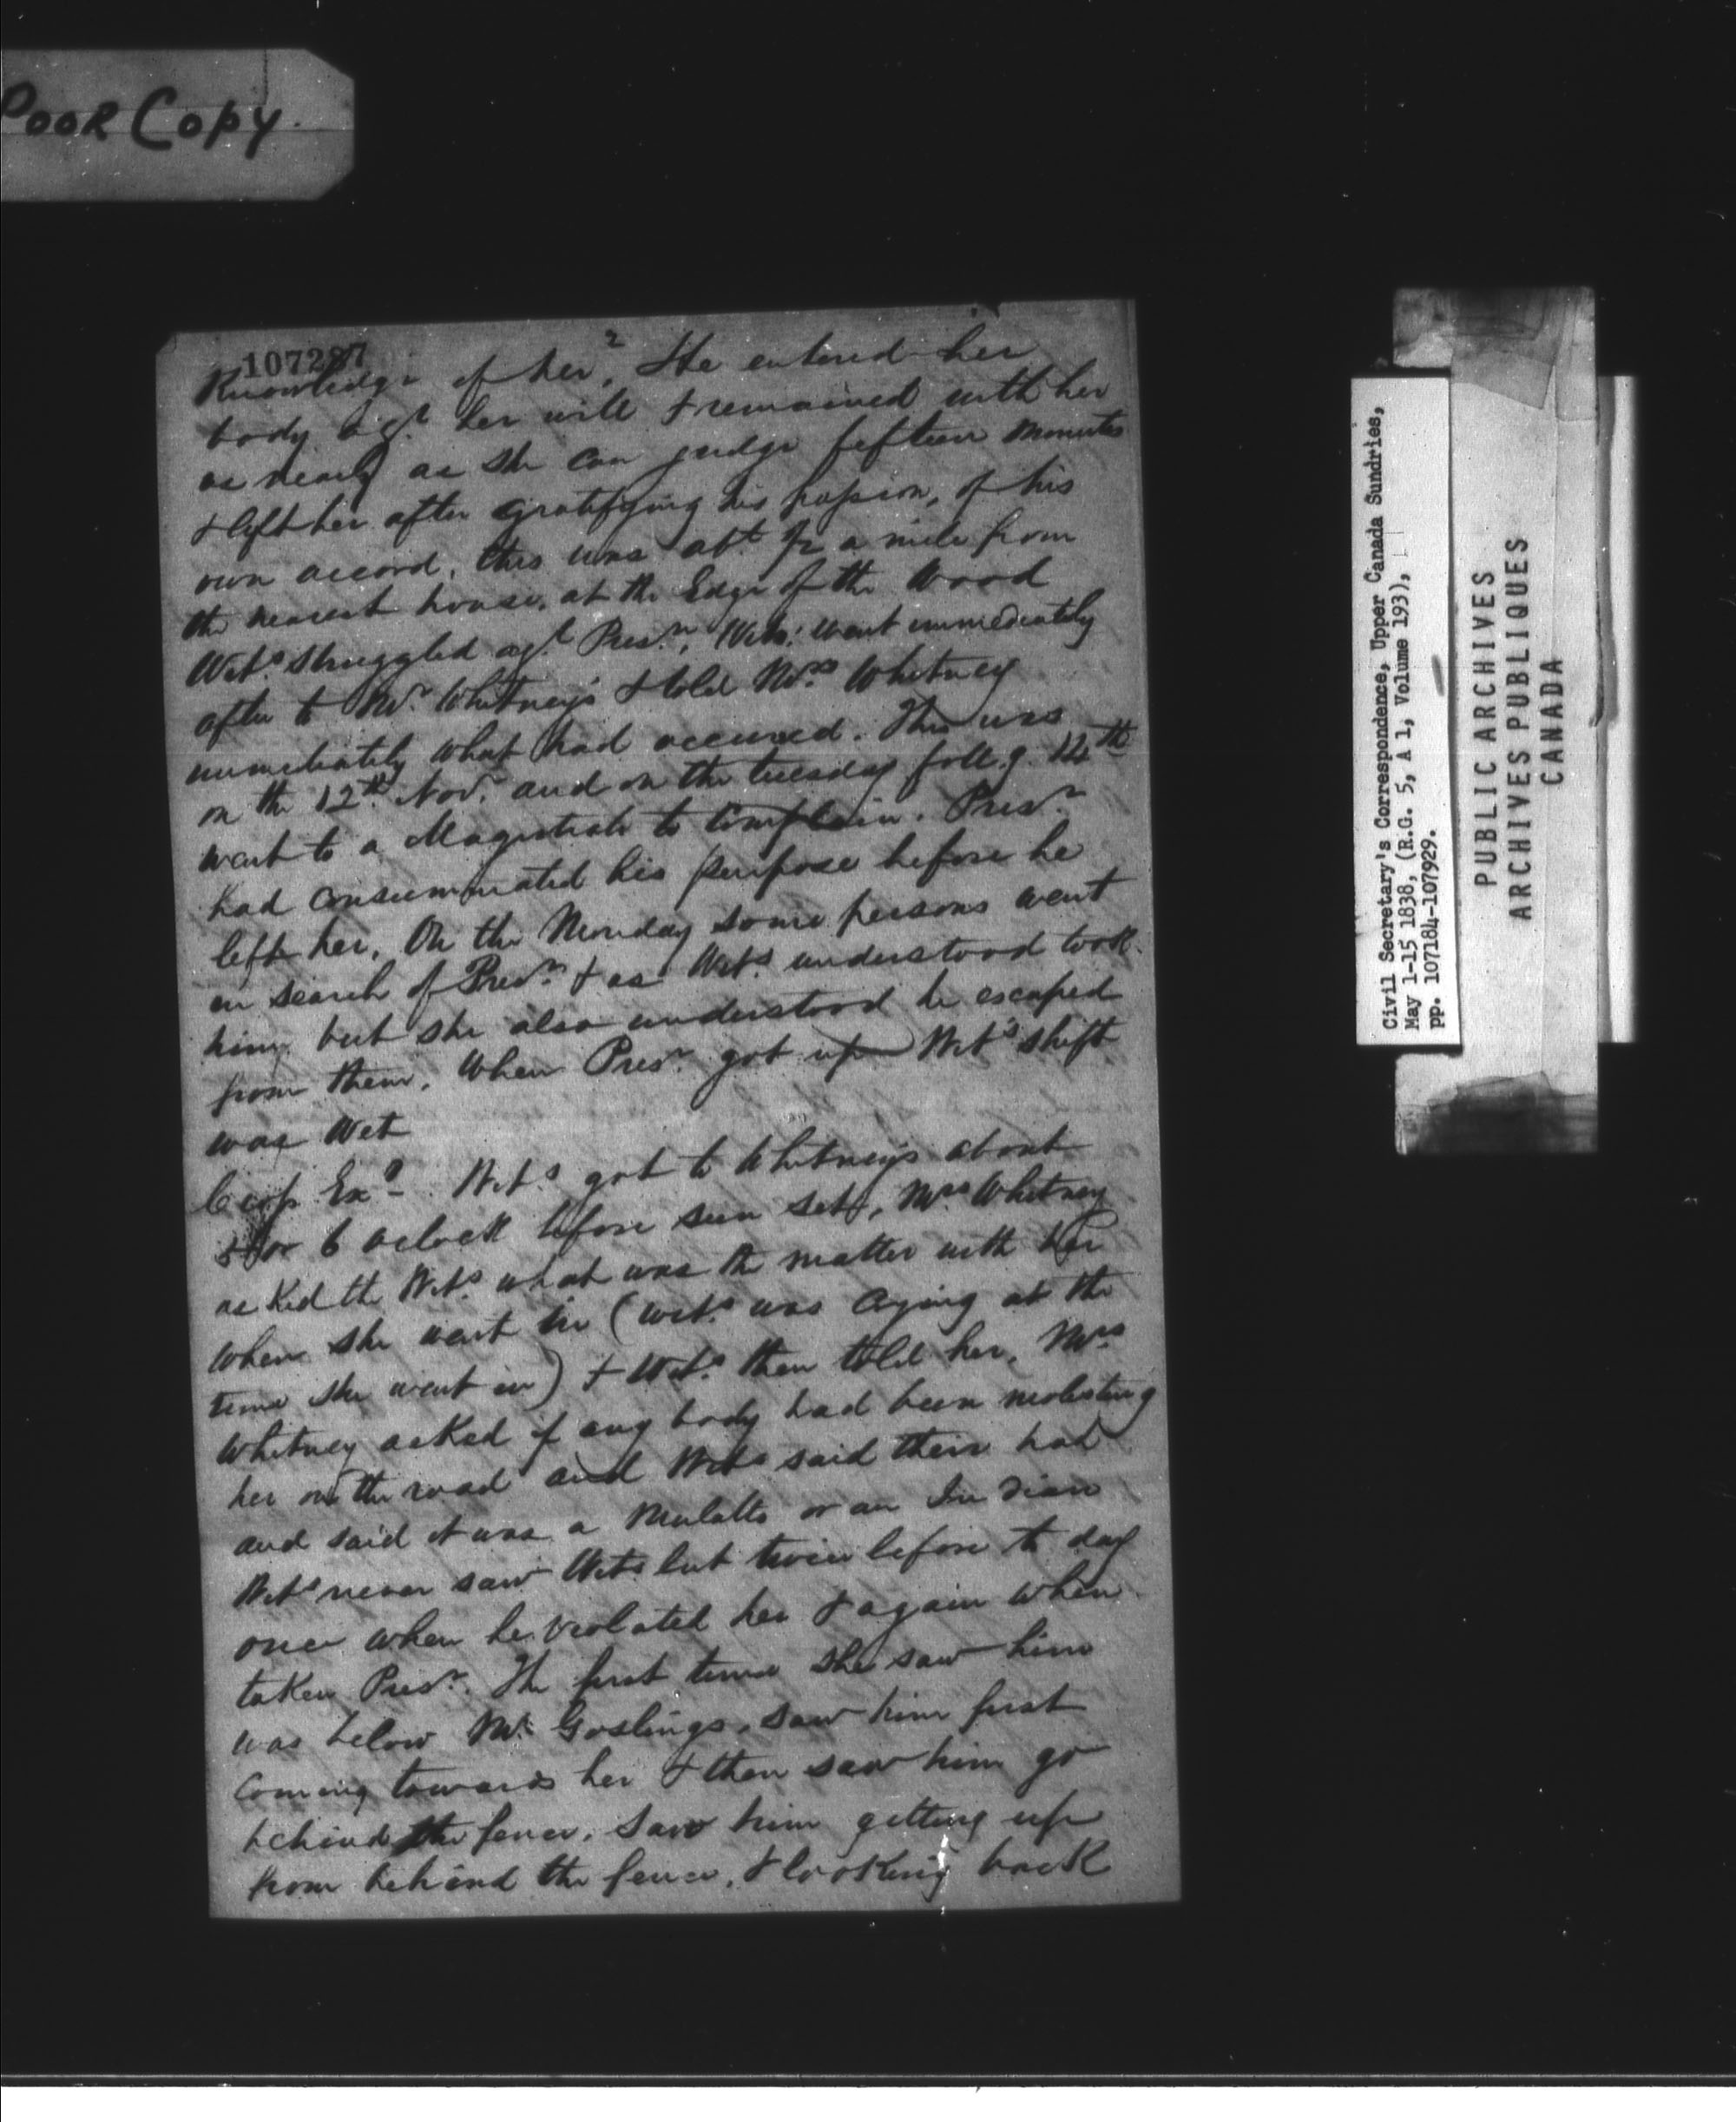 POOR COPY.
107287
2
Knowledge of her, He entered her
body agt her will & remained with her
as nearly as she can judge fifteen minutes
& left her after gratifying his passion, of his
own accord, this was abt ½ a mile from
the nearest house, at the Edge of the Wood
Wits struggled agt Prisr, Wits: went immediately
after to Mr Whitney's & told Mrs Whitney
immediately what had occurred. This was
on the 12th Novr and on the tuesday follg. 14th
went to a Magistrate to complain. Prisr
had consummated his purpose before he
left her, On the Monday some persons went
in search of Prisr & as Wits understood took
him, but she also understood he escaped
from them, When Prisr got up Wit's shift
was Wet
Crop Exn - Wits got to Whitneys about
5 or 6 oclock before sun set, Mrs Whitney
asked the Wits what was the matter with her
when she went in (Wits was crying at the
time she went in) & Wits then told her, Mrs
Whitney asked if any body had been molesting
her on the road and Wits said their had
and said it was a Mulatto or an Indian
Wits never saw Wits but twice before to day
once when he violated her & again when
taken Prisr. The first time she saw him
was below Mr Goslings, saw him first
coming towards her & then saw him go
behind the fence. Saw him getting up
from behind the fence, & looking back
Civil Secretary's Correspondence, Upper Canada Sundries,
May 1-15 1838, (R.G. 5, A 1, Volume 193),
pp. 107184-107929.
PUBLIC ARCHIVES
ARCHIVES PUBLIQUES
CANADA